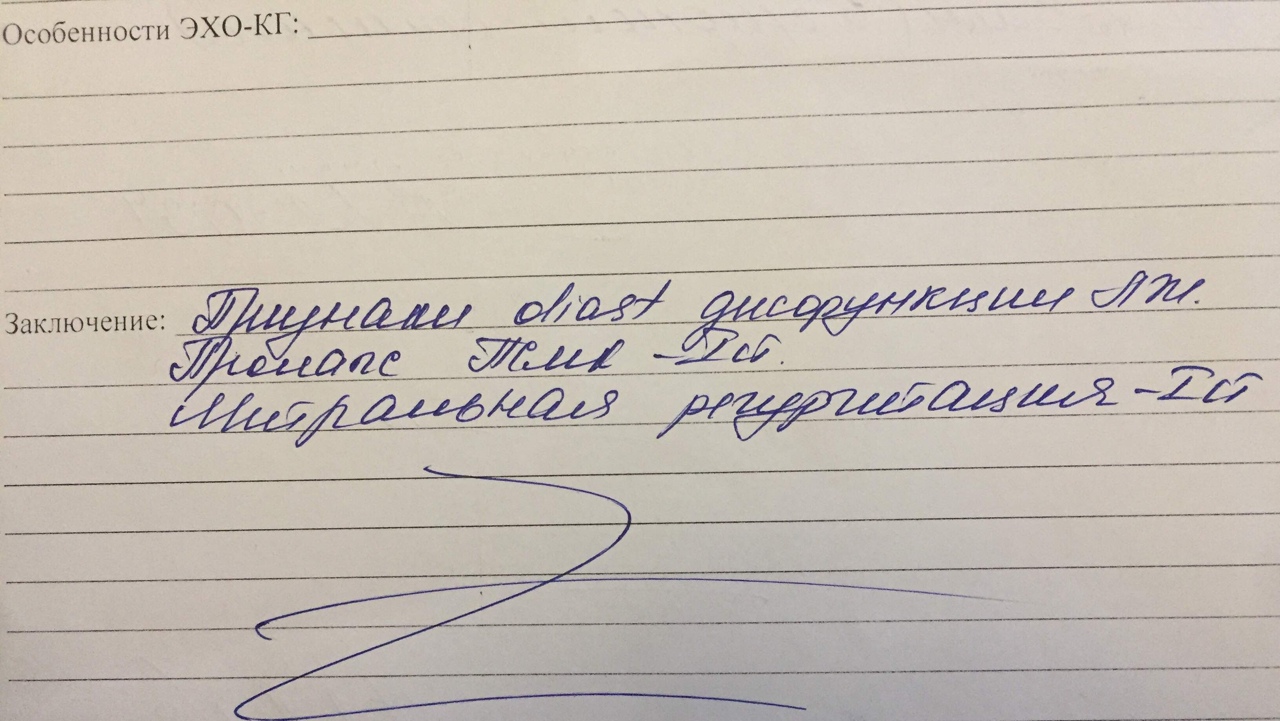 Особенности ЭХО-КГ:
Заключение: Признаки diast дисфункции ЛЖ.
Пролапс ПМК - I ст.
Митральная регургитация - I ст